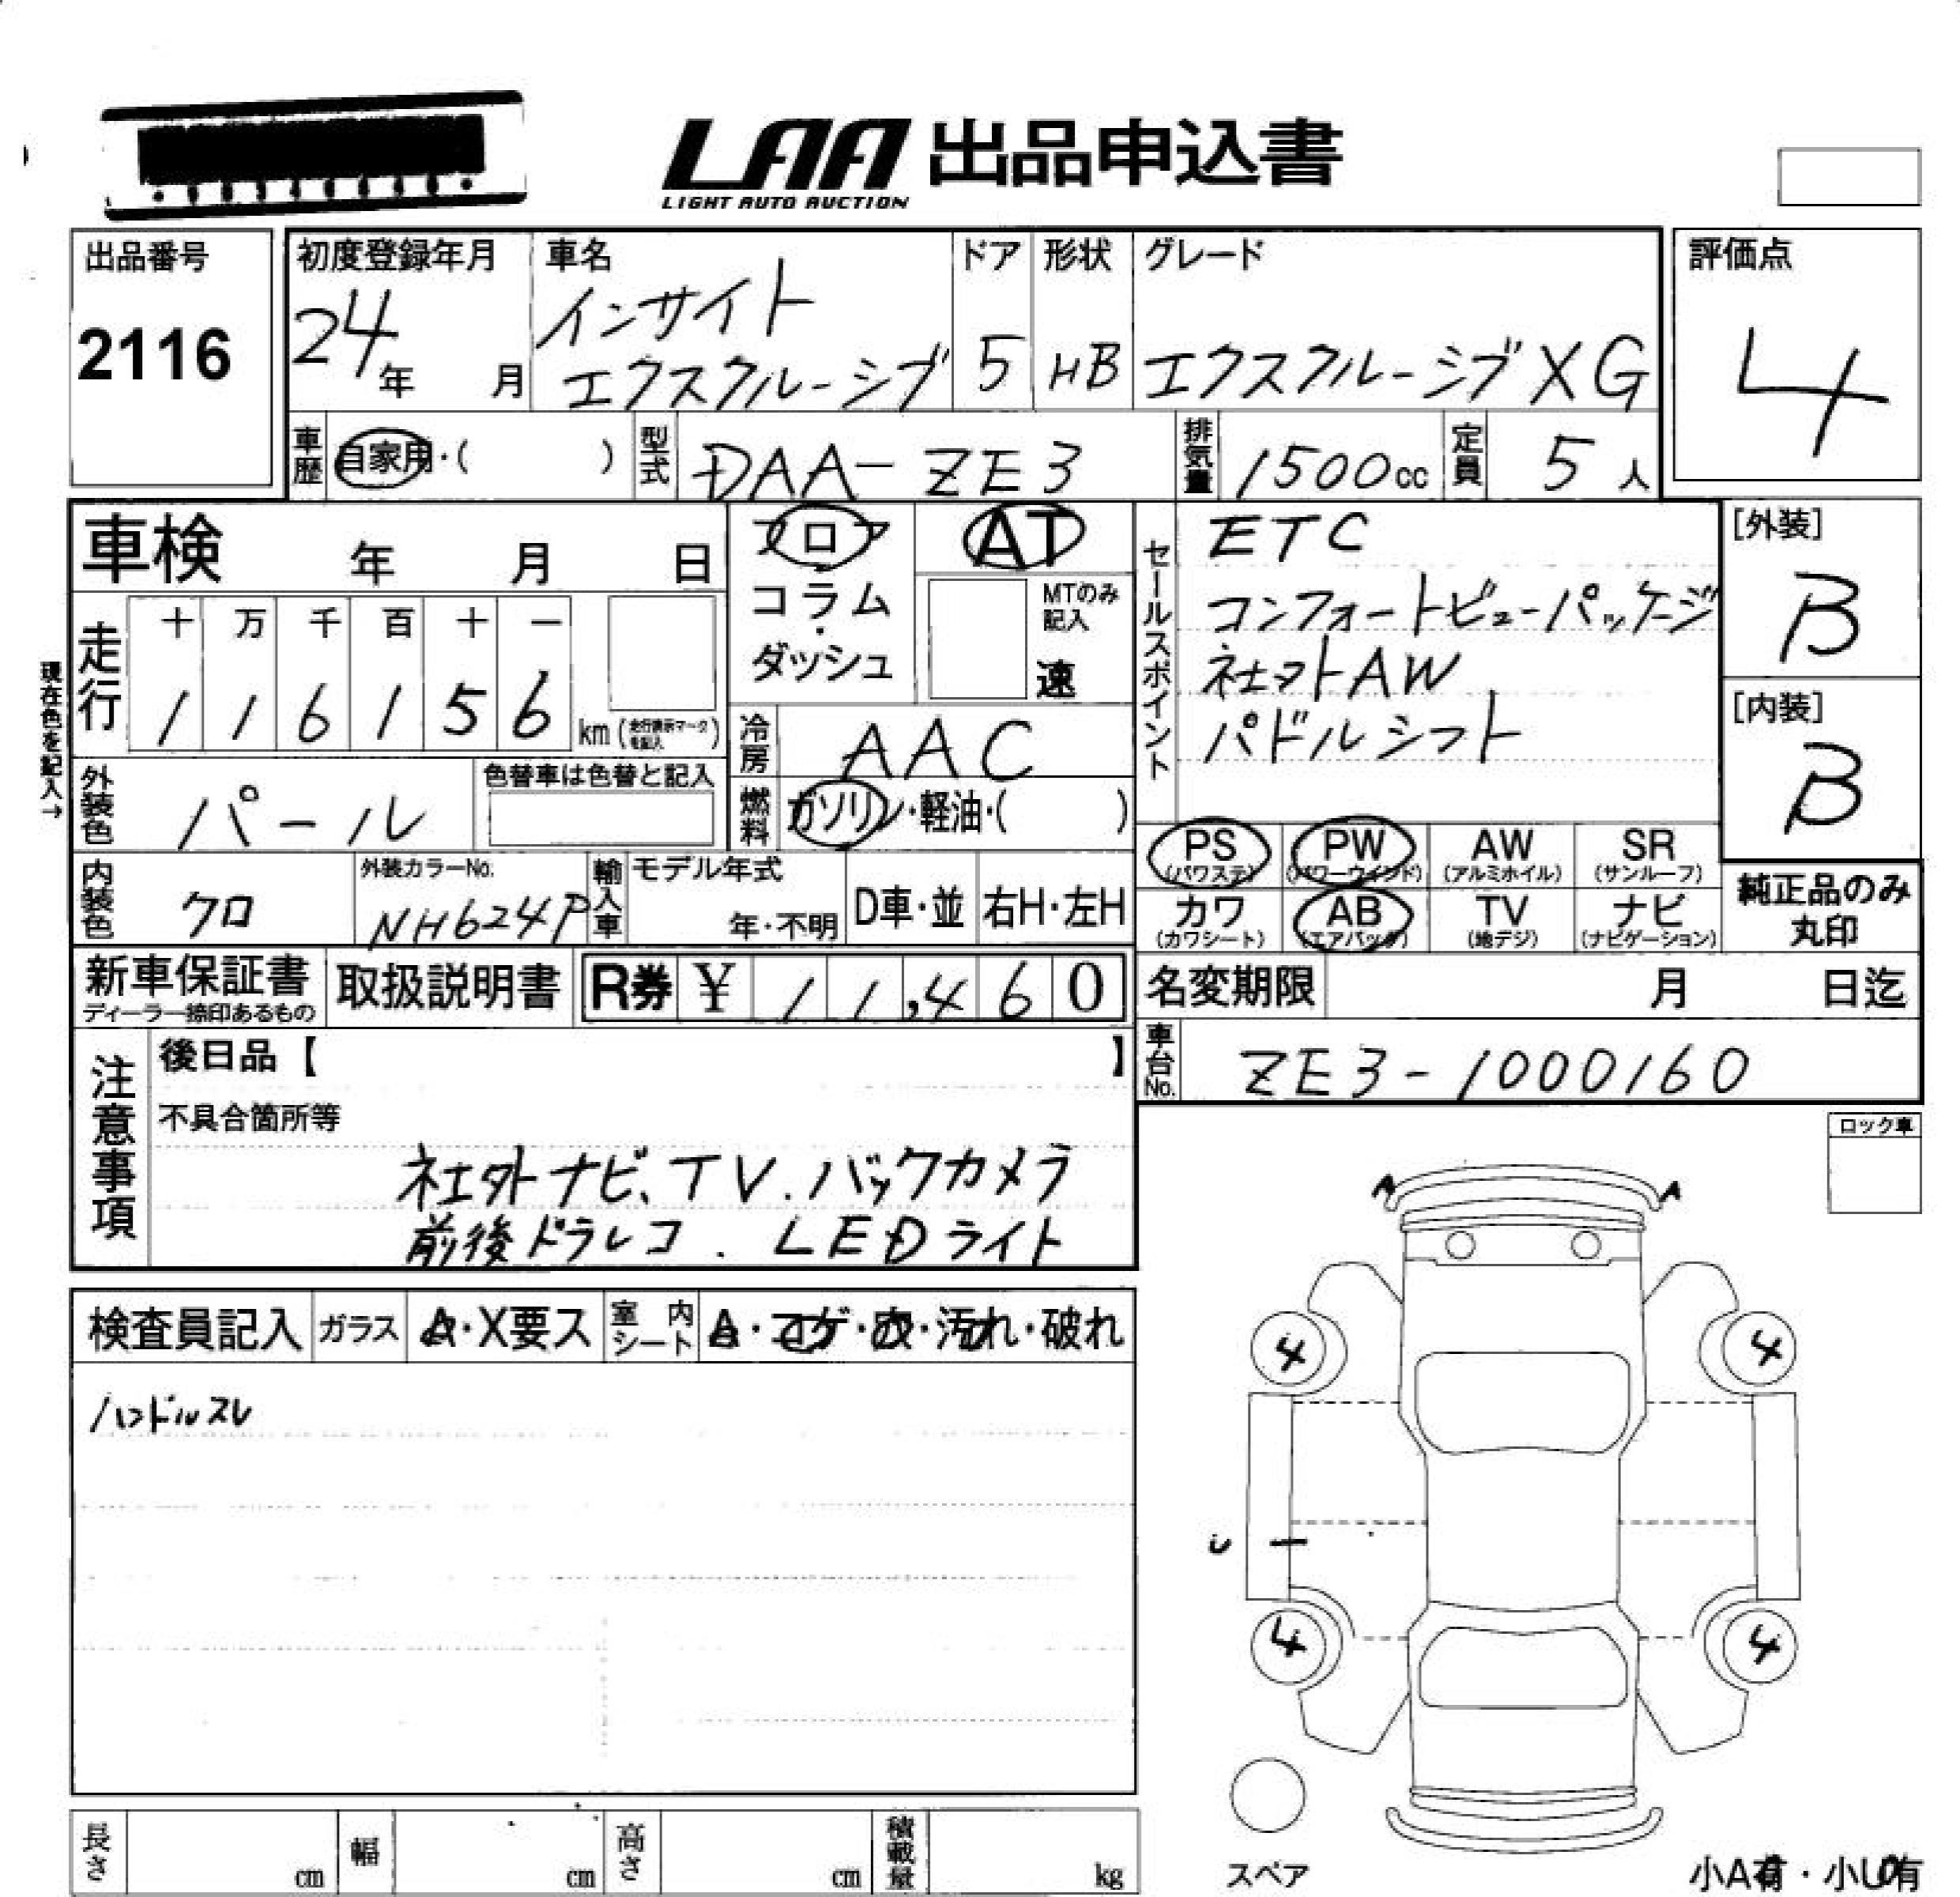 LAA 出品申込書
LIGHT AUTO AUCTION
出品番号
2116
初度登録年月
24年 月
車名
インサイト
エクスクルーシブ
ドア
5
形状
HB
グレード
エクスクルーシブXG
評価点
4
車歴 自家用・( )
型式 DAA-ZE3
排気量 1500cc
定員 5人
車検 年 月 日
現在色を記入→
走行 十 万 千 百 十 一
1 1 6 1 5 6 km (走行表示マークを記入)
フロア
コラム
・
ダッシュ
AT
MTのみ
記入
速
冷房 AAC
燃料 ガソリン・軽油・( )
セールスポイント
ETC
コンフォートビューパッケージ
社外AW
パドルシフト
[外装]
B
[内装]
B
外装色 パール
色替車は色替と記入
内装色 クロ
外装カラーNo.
NH624P
輸入車
モデル年式
年・不明
D車・並
右H・左H
PS (パワステ)
PW (パワーウィンド)
AW (アルミホイル)
SR (サンルーフ)
カワ (カワシート)
AB (エアバック)
TV (地デジ)
ナビ (ナビゲーション)
純正品のみ
丸印
新車保証書
ディーラー捺印あるもの
取扱説明書
R券 ¥ 11,460
名変期限 月 日迄
車台No. ZE3-1000160
注意事項
後日品【 】
不具合箇所等
社外ナビ、TV.バックカメラ
前後ドラレコ. LEDライト
ロック車
検査員記入 ガラス A・X要ス 室内シート A・コゲ・穴・汚れ・破れ
ハンドルスレ
A A
4 4
4 4
スペア
長さ cm 幅 cm 高さ cm 積載量 kg
小A有・小U有